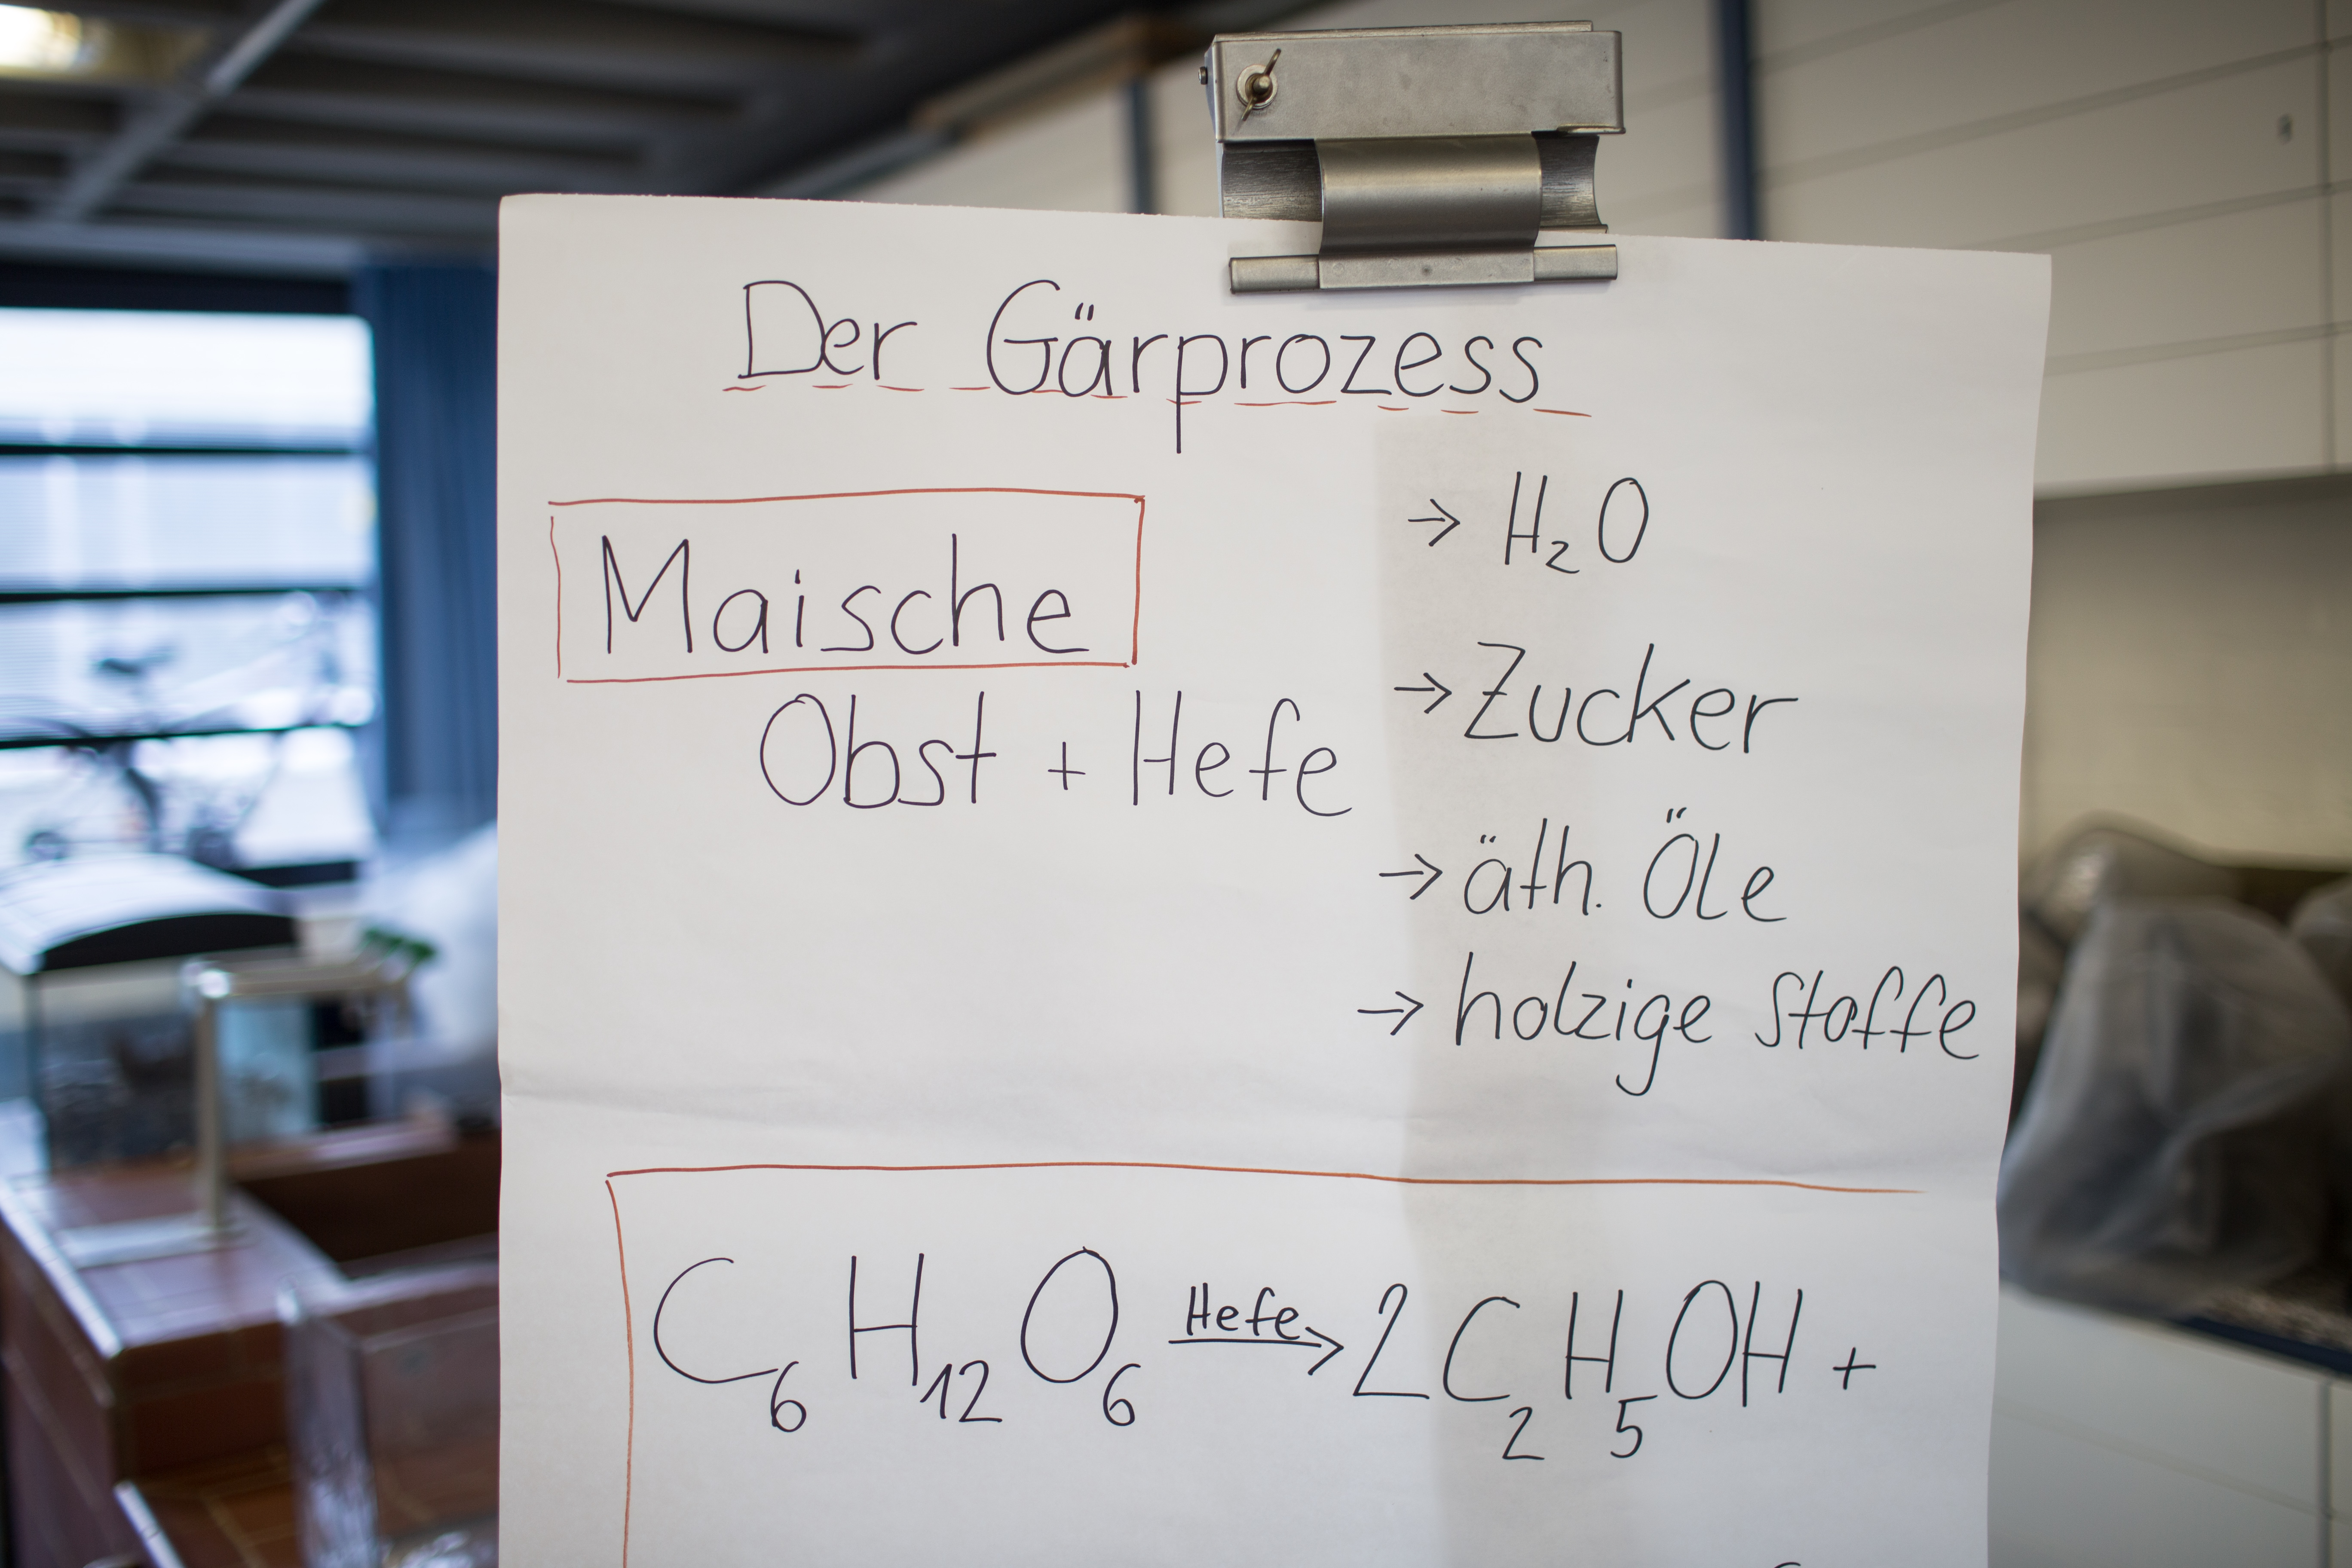 Der Gärprozess
Maische
Obst + Hefe
→ H₂O
→ Zucker
→ äth. Öle
→ holzige Stoffe
C₆H₁₂O₆ Hefe→ 2C₂H₅OH +